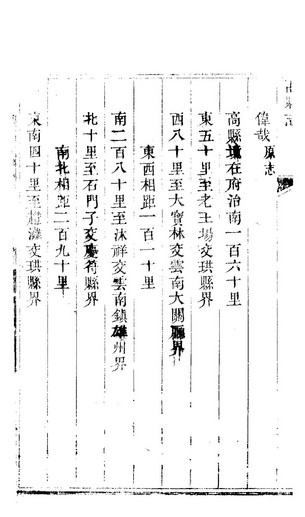 偉哉 原志
高縣境在府治南一百六十里
東五十里至老王場交珙縣界
西八十里至大寶林交雲南大關縣界
東西相距一百一十里
南二百八十里至沐祥交雲南鎮雄州界
北十里至石門子交慶符縣界
南北相距二百九十里
東南四十里至趕灘交珙縣界